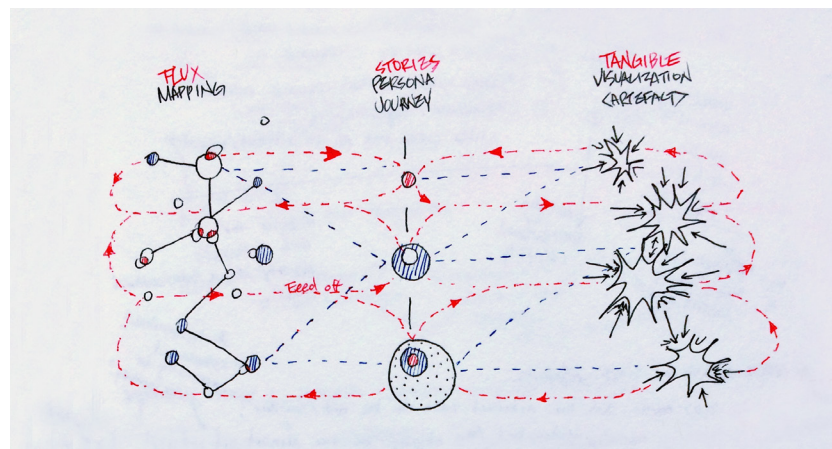 FLUX
MAPPING
STORIES
PERSONA
JOURNEY
TANGIBLE
VISUALIZATION
<ARTEFACT>
Feed off